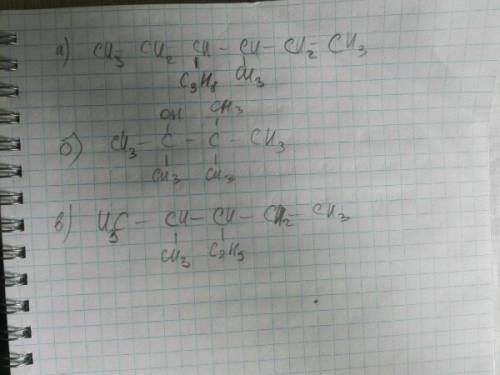 а) CH3 CH2 CH - CH - CH2 - CH3
C3H8 CH3
OH CH3
б) CH3 - C - C - CH3
CH3 CH3
в) H3C - CH - CH - CH2 - CH3
CH3 C2H5